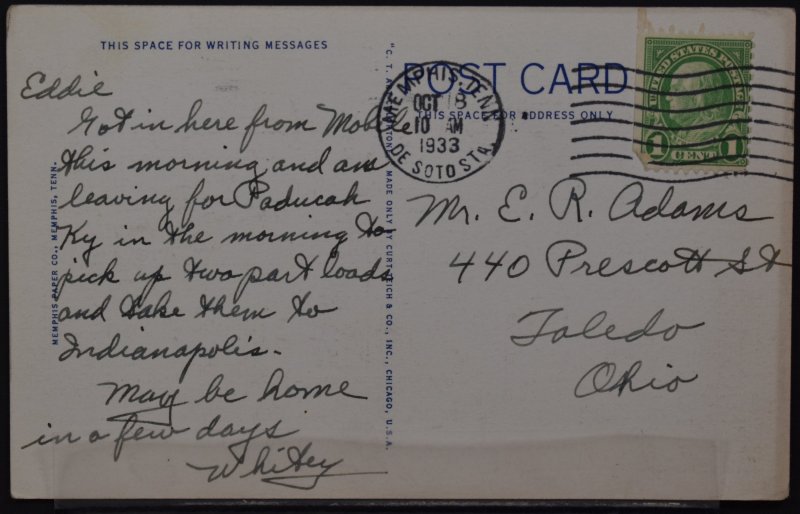 THIS SPACE FOR WRITING MESSAGES
Eddie
Got in here from Mobile
this morning and am
leaving for Paducah
Ky in the morning to
pick up two part loads
and take them to
Indianapolis.
May be home
in a few days
Whitey
MEMPHIS PAPER CO., MEMPHIS, TENN.
MADE ONLY BY CURT TEICH & CO., INC., CHICAGO, U.S.A.
POST CARD
THIS SPACE FOR ADDRESS ONLY
MEMPHIS, TENN.
OCT 18
10 AM
1933
DE SOTO STA.
UNITED STATES POSTAGE
1 CENT 1
Mr. E. R. Adams
440 Prescott St
Toledo
Ohio